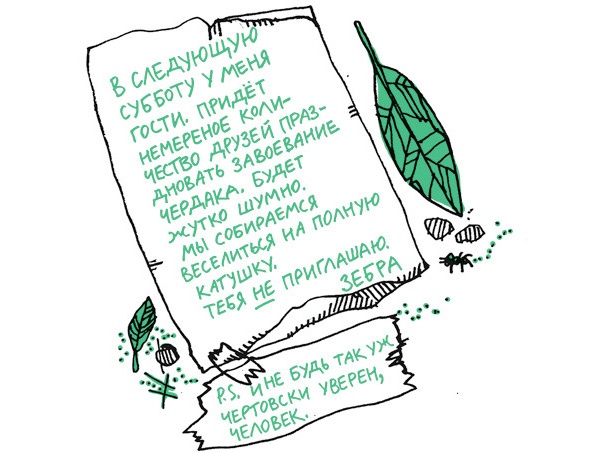 В СЛЕДУЮЩУЮ
СУББОТУ У МЕНЯ
ГОСТИ. ПРИДЁТ
НЕМЕРЕНОЕ КОЛИ-
ЧЕСТВО ДРУЗЕЙ ПРАЗ-
ДНОВАТЬ ЗАВОЕВАНИЕ
ЧЕРДАКА. БУДЕТ
ЖУТКО ШУМНО.
МЫ СОБИРАЕМСЯ
ВЕСЕЛИТЬСЯ НА ПОЛНУЮ
КАТУШКУ.
ТЕБЯ НЕ ПРИГЛАШАЮ.
ЗЕБРА
P.S. И НЕ БУДЬ ТАК УЖ
ЧЕРТОВСКИ УВЕРЕН,
ЧЕЛОВЕК.